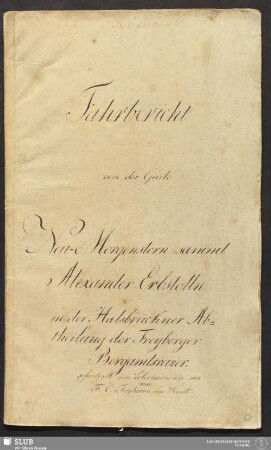 Fahrbericht
von der Grube
Neu-e Morgenstern sammt
Alexander Erbstolln
in der Halsbrückner Ab=
theilung der Freyberger
Bergamtsrevier.
gefertigt von
von
F. C.
SLUB